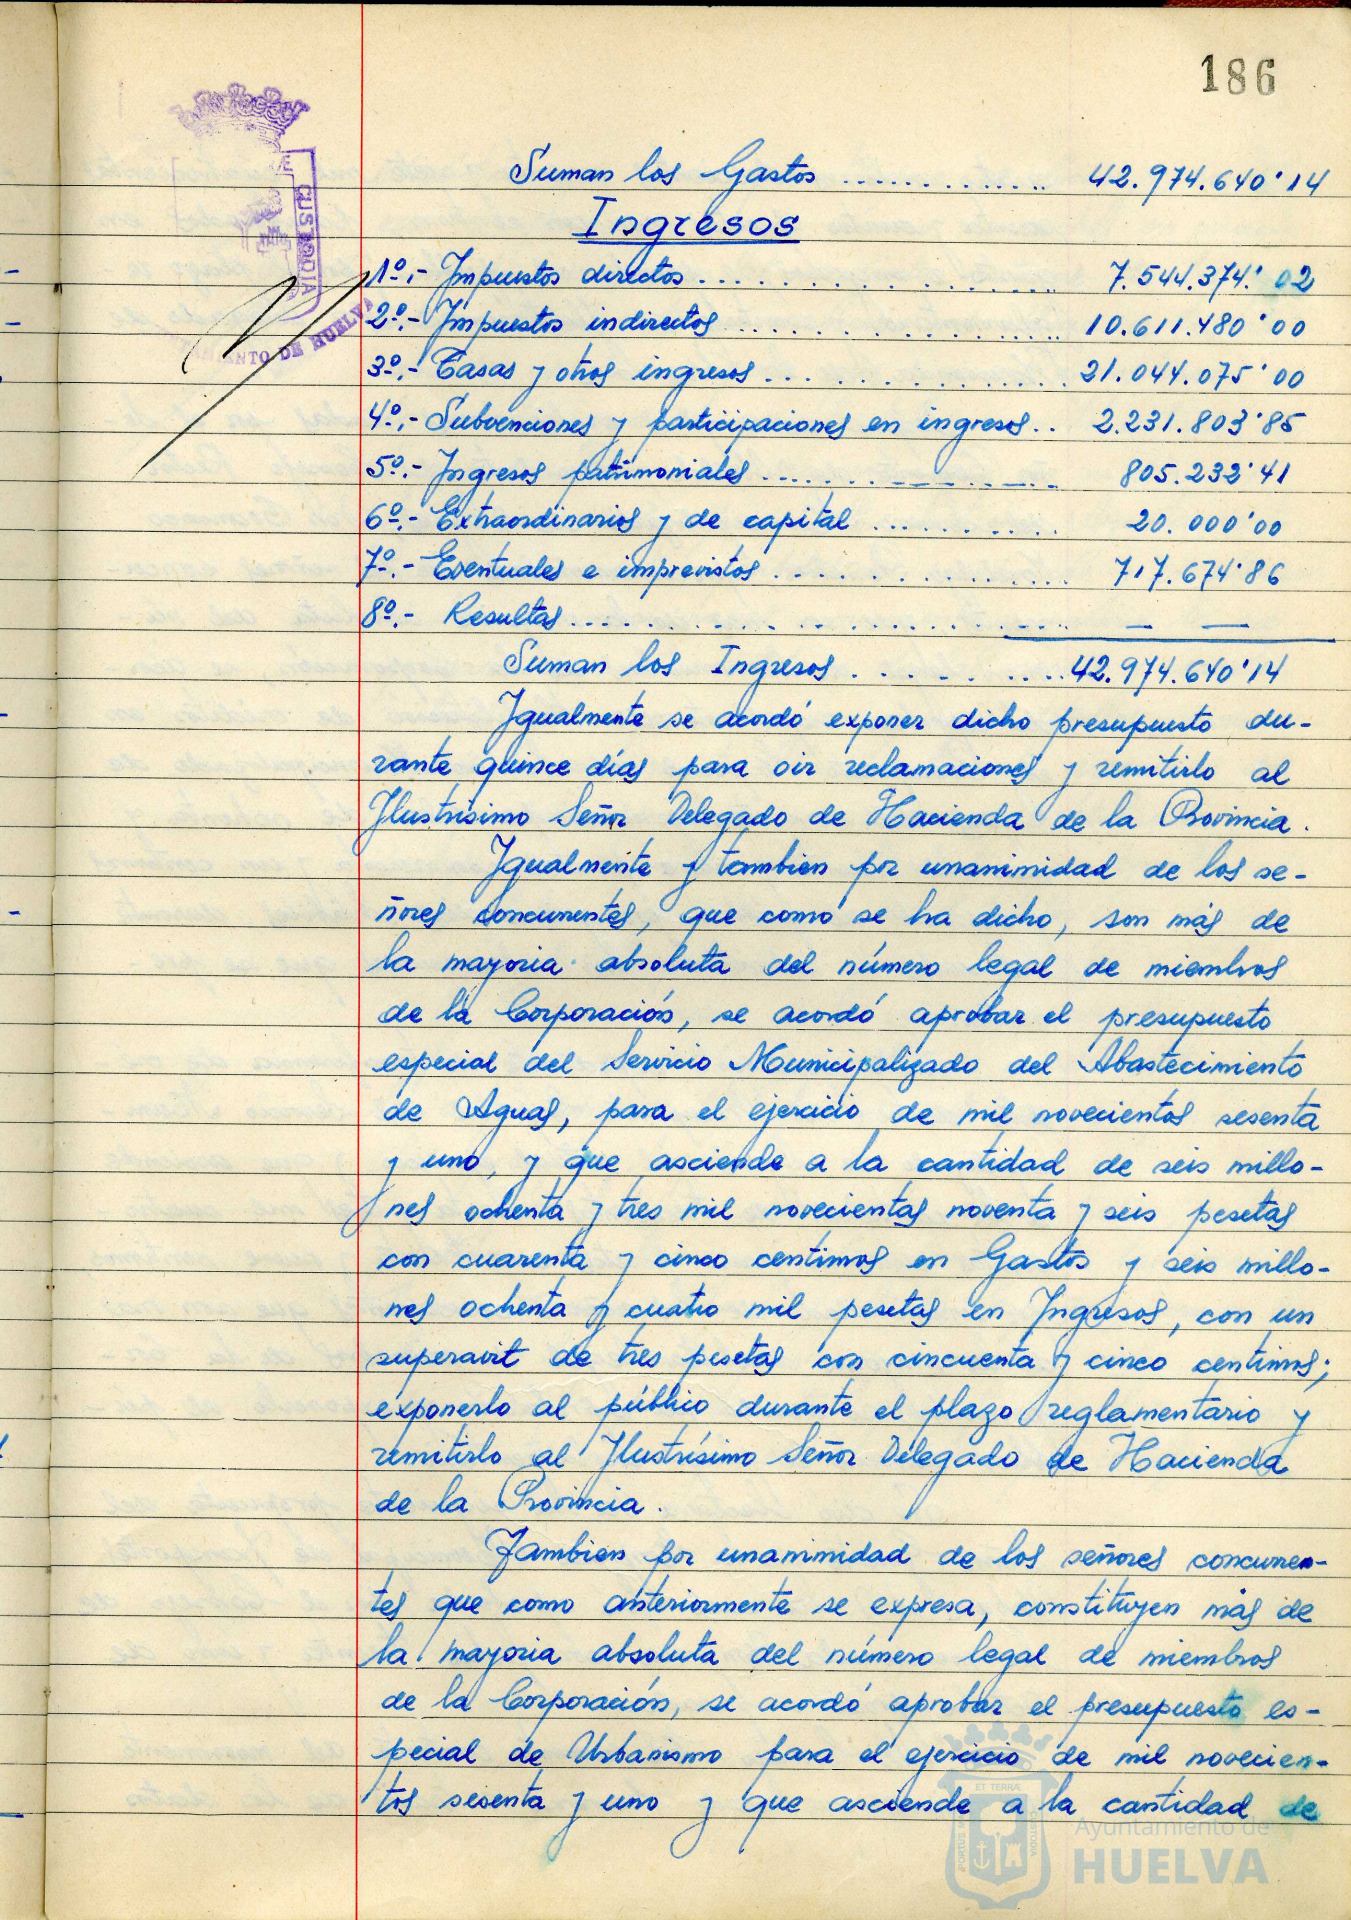 186
Suman los Gastos ............ 42.974.640'14
Ingresos
1º.- Impuestos directos.................. 7.544.374'02
2º.- Impuestos indirectos................ 10.611.480'00
3º.- Tasas y otros ingresos.............. 21.044.075'00
4º.- Subvenciones y participaciones en ingresos.. 2.231.803'85
5º.- Ingresos patrimoniales.............. 805.232'41
6º.- Extraordinarios y de capital .......... 20.000'00
7º.- Eventuales e imprevistos............... 717.674'86
8º.- Resultas....................... — —
Suman los Ingresos ..........42.974.640'14
Igualmente se acordó exponer dicho presupuesto du-
rante quince días para oir reclamaciones y remitirlo al
Ilustrísimo Señor Delegado de Hacienda de la Provincia.
Igualmente y tambien por unanimidad de los se-
ñores concurrentes, que como se ha dicho, son más de
la mayoria absoluta del número legal de miembros
de la Corporación, se acordó aprobar el presupuesto
especial del Servicio Municipalizado del Abastecimiento
de Aguas, para el ejercicio de mil novecientos sesenta
y uno, y que asciende a la cantidad de seis millo-
nes ochenta y tres mil novecientas noventa y seis pesetas
con cuarenta y cinco centimos en Gastos y seis millo-
nes ochenta y cuatro mil pesetas en Ingresos, con un
superavit de tres pesetas con cincuenta y cinco centimos;
exponerlo al público durante el plazo reglamentario y
remitirlo al Ilustrísimo Señor Delegado de Hacienda
de la Provincia.
Tambien por unanimidad de los señores concurren-
tes que como anteriormente se expresa, constituyen más de
la mayoria absoluta del número legal de miembros
de la Corporación, se acordó aprobar el presupuesto es-
pecial de Urbanismo para el ejercicio de mil novecien-
tos sesenta y uno y que asciende a la cantidad de
CUSTODIA
DE HUELVA
Ayuntamiento de
HUELVA